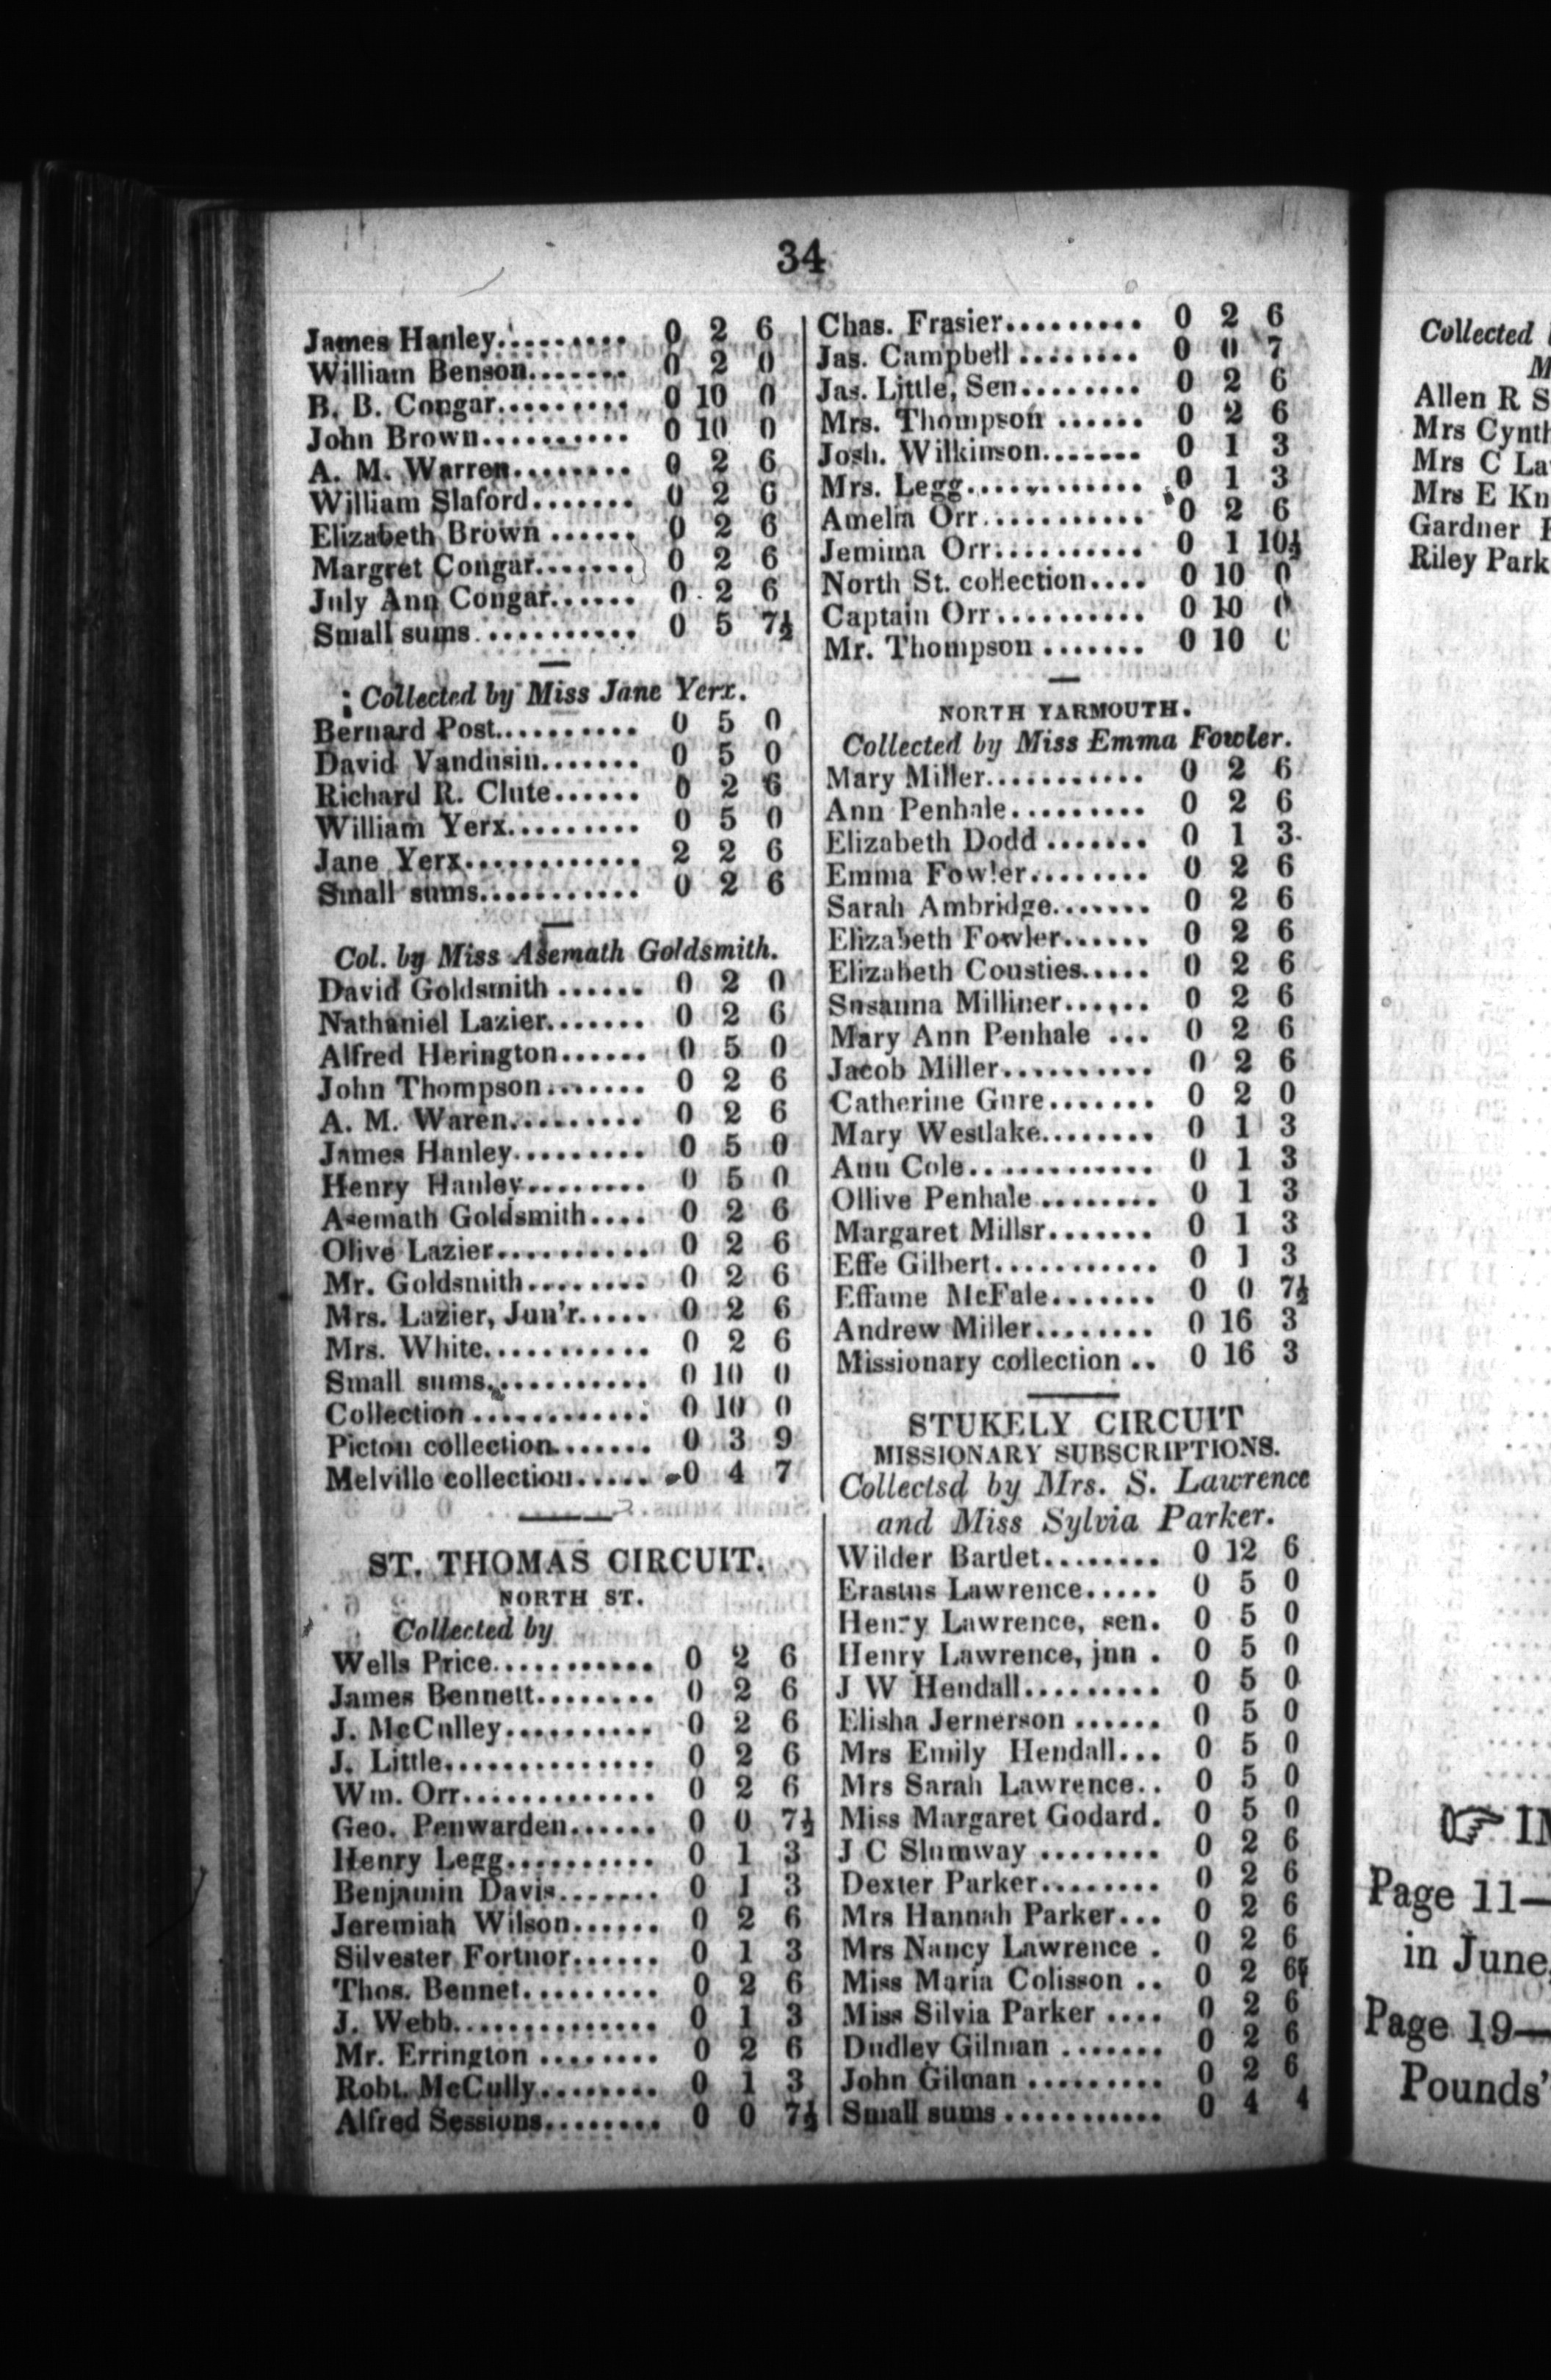 34
James Hanley......... 0 2 6
William Benson....... 0 2 0
B. B. Congar......... 0 10 0
John Brown.......... 0 10 0
A. M. Warren........ 0 2 6
William Slaford....... 0 2 6
Elizabeth Brown ...... 0 2 6
Margret Congar....... 0 2 6
July Ann Congar...... 0 2 6
Small sums .......... 0 5 7½
Collected by Miss Jane Yerx.
Bernard Post.......... 0 5 0
David Vandusin....... 0 5 0
Richard R. Clute...... 0 2 6
William Yerx......... 0 5 0
Jane Yerx............ 2 2 6
Small sums........... 0 2 6
Col. by Miss Asemath Goldsmith.
David Goldsmith ...... 0 2 0
Nathaniel Lazier....... 0 2 6
Alfred Herington...... 0 5 0
John Thompson....... 0 2 6
A. M. Waren......... 0 2 6
James Hanley......... 0 5 0
Henry Hanley........ 0 5 0
Asemath Goldsmith.... 0 2 6
Olive Lazier........... 0 2 6
Mr. Goldsmith........ 0 2 6
Mrs. Lazier, Jun'r..... 0 2 6
Mrs. White........... 0 2 6
Small sums........... 0 10 0
Collection ............ 0 10 0
Picton collection....... 0 3 9
Melville collection..... 0 4 7
ST. THOMAS CIRCUIT.
NORTH ST.
Collected by
Wells Price........... 0 2 6
James Bennett........ 0 2 6
J. McCulley.......... 0 2 6
J. Little............... 0 2 6
Wm. Orr............. 0 2 6
Geo. Penwarden...... 0 0 7½
Henry Legg.......... 0 1 3
Benjamin Davis....... 0 1 3
Jeremiah Wilson...... 0 2 6
Silvester Fortnor...... 0 1 3
Thos. Bennet......... 0 2 6
J. Webb.............. 0 1 3
Mr. Errington ........ 0 2 6
Robt. McCully........ 0 1 3
Alfred Sessions......... 0 0 7½
Chas. Frasier......... 0 2 6
Jas. Campbell ........ 0 0 7
Jas. Little, Sen........ 0 2 6
Mrs. Thompson ...... 0 2 6
Josh. Wilkinson....... 0 1 3
Mrs. Legg............ 0 1 3
Amelia Orr........... 0 2 6
Jemima Orr.......... 0 1 10½
North St. collection.... 0 10 0
Captain Orr.......... 0 10 0
Mr. Thompson ....... 0 10 0
NORTH YARMOUTH.
Collected by Miss Emma Fowler.
Mary Miller........... 0 2 6
Ann Penhale.......... 0 2 6
Elizabeth Dodd ....... 0 1 3
Emma Fowler........ 0 2 6
Sarah Ambridge....... 0 2 6
Elizabeth Fowler...... 0 2 6
Elizabeth Cousties..... 0 2 6
Susanna Milliner...... 0 2 6
Mary Ann Penhale ... 0 2 6
Jacob Miller.......... 0 2 6
Catherine Gure....... 0 2 0
Mary Westlake........ 0 1 3
Ann Cole............. 0 1 3
Ollive Penhale........ 0 1 3
Margaret Millsr....... 0 1 3
Effe Gilbert........... 0 1 3
Effame McFale....... 0 0 7½
Andrew Miller........ 0 16 3
Missionary collection .. 0 16 3
STUKELY CIRCUIT
MISSIONARY SUBSCRIPTIONS.
Collectsd by Mrs. S. Lawrence
and Miss Sylvia Parker.
Wilder Bartlet........ 0 12 6
Erastus Lawrence..... 0 5 0
Henry Lawrence, sen. 0 5 0
Henry Lawrence, jnn . 0 5 0
J W Hendall......... 0 5 0
Elisha Jernerson ...... 0 5 0
Mrs Emily Hendall... 0 5 0
Mrs Sarah Lawrence.. 0 5 0
Miss Margaret Godard. 0 5 0
J C Slumway ........ 0 2 6
Dexter Parker........ 0 2 6
Mrs Hannah Parker... 0 2 6
Mrs Nancy Lawrence . 0 2 6
Miss Maria Colisson .. 0 2 6
Miss Silvia Parker .... 0 2 6
Dudley Gilman ....... 0 2 6
John Gilman ......... 0 2 6
Small sums ........... 0 4 4
Collected
Allen R S
Mrs Cynth
Mrs C La
Mrs E Kn
Gardner
Riley Park
☞ IM
Page 11—
in June,
Page 19—
Pounds'